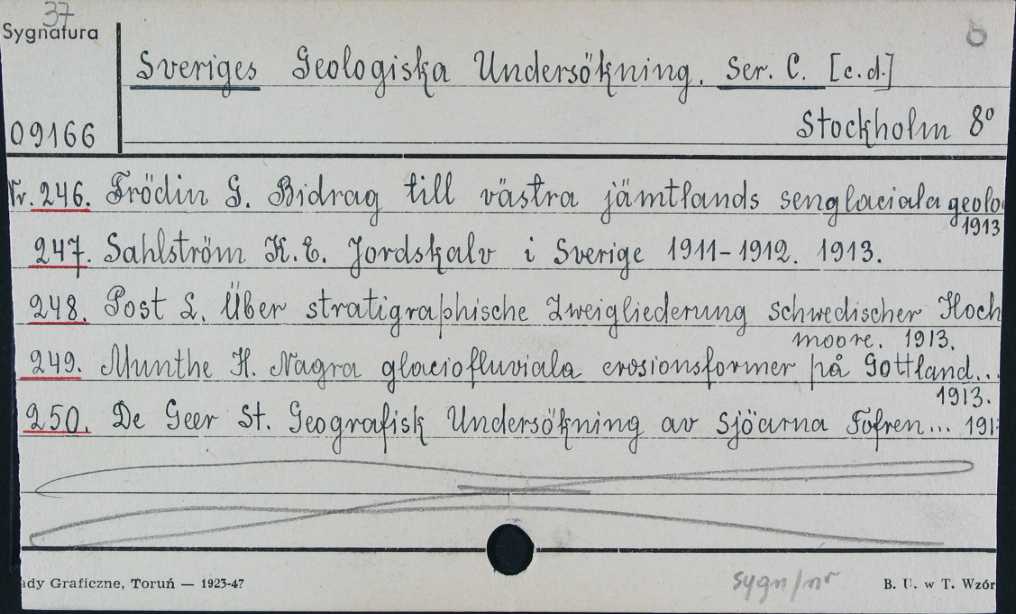 37
Sygnatura
8
Sveriges Geologiska Undersökning. Ser. C. [c.d.]
09166
Stockholm 8°
Nr. 246. Frödin G. Bidrag till västra jämtlands senglaciala geolo
1913
247. Sahlström K. E. Jordskalv i Sverige 1911-1912. 1913.
248. Post L. Über stratigraphische Zweigliederung Schwedischer Hoch
moore. 1913.
249. Munthe H. Nagra glaciofluviala erosionsformer på Gottland...
1913.
250. De Geer St. Geografisk Undersökning av Sjöarna Tofren... 191
ady Graficzne, Toruń — 1925-47
sygn/nr
B. U. w T. Wzór